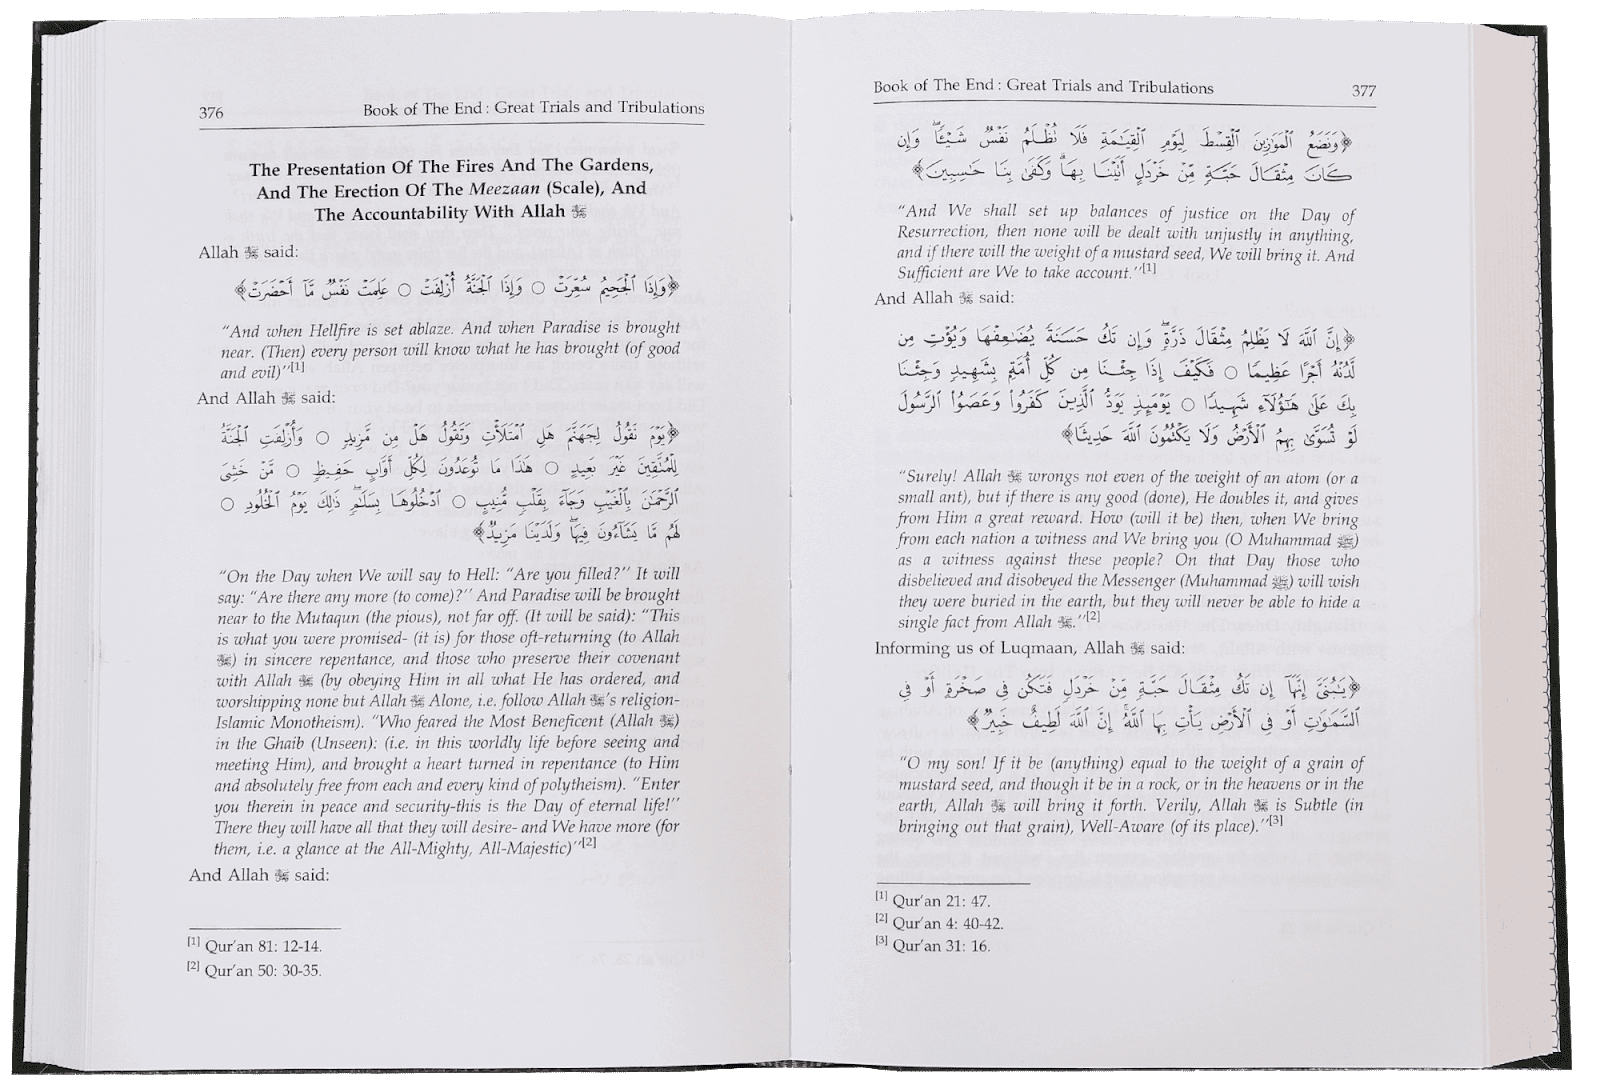 376 Book of The End : Great Trials and Tribulations
The Presentation Of The Fires And The Gardens,
And The Erection Of The Meezaan (Scale), And
The Accountability With Allah ﷻ
Allah ﷻ said:
﴿وَإِذَا ٱلْجَحِيمُ سُعِّرَتْ ○ وَإِذَا ٱلْجَنَّةُ أُزْلِفَتْ ○ عَلِمَتْ نَفْسٌ مَّآ أَحْضَرَتْ﴾
“And when Hellfire is set ablaze. And when Paradise is brought
near. (Then) every person will know what he has brought (of good
and evil)”[1]
And Allah ﷻ said:
﴿يَوْمَ نَقُولُ لِجَهَنَّمَ هَلِ ٱمْتَلَأْتِ وَتَقُولُ هَلْ مِن مَّزِيدٍ ○ وَأُزْلِفَتِ ٱلْجَنَّةُ
لِلْمُتَّقِينَ غَيْرَ بَعِيدٍ ○ هَٰذَا مَا تُوعَدُونَ لِكُلِّ أَوَّابٍ حَفِيظٍ ○ مَّنْ خَشِىَ
ٱلرَّحْمَٰنَ بِٱلْغَيْبِ وَجَآءَ بِقَلْبٍ مُّنِيبٍ ○ ٱدْخُلُوهَا بِسَلَٰمٍ ۖ ذَٰلِكَ يَوْمُ ٱلْخُلُودِ ○
لَهُم مَّا يَشَآءُونَ فِيهَا ۖ وَلَدَيْنَا مَزِيدٌ﴾
“On the Day when We will say to Hell: “Are you filled?” It will
say: “Are there any more (to come)?” And Paradise will be brought
near to the Mutaqun (the pious), not far off. (It will be said): “This
is what you were promised- (it is) for those oft-returning (to Allah
ﷻ) in sincere repentance, and those who preserve their covenant
with Allah ﷻ (by obeying Him in all what He has ordered, and
worshipping none but Allah ﷻ Alone, i.e. follow Allah ﷻ’s religion-
Islamic Monotheism). “Who feared the Most Beneficent (Allah ﷻ)
in the Ghaib (Unseen): (i.e. in this worldly life before seeing and
meeting Him), and brought a heart turned in repentance (to Him
and absolutely free from each and every kind of polytheism). “Enter
you therein in peace and security-this is the Day of eternal life!”
There they will have all that they will desire- and We have more (for
them, i.e. a glance at the All-Mighty, All-Majestic)”[2]
And Allah ﷻ said:
[1] Qur’an 81: 12-14.
[2] Qur’an 50: 30-35.
Book of The End : Great Trials and Tribulations 377
﴿وَنَضَعُ ٱلْمَوَٰزِينَ ٱلْقِسْطَ لِيَوْمِ ٱلْقِيَٰمَةِ فَلَا تُظْلَمُ نَفْسٌ شَيْـًٔا ۖ وَإِن
كَانَ مِثْقَالَ حَبَّةٍ مِّنْ خَرْدَلٍ أَتَيْنَا بِهَا ۗ وَكَفَىٰ بِنَا حَٰسِبِينَ﴾
“And We shall set up balances of justice on the Day of
Resurrection, then none will be dealt with unjustly in anything,
and if there will the weight of a mustard seed, We will bring it. And
Sufficient are We to take account.”[1]
And Allah ﷻ said:
﴿إِنَّ ٱللَّهَ لَا يَظْلِمُ مِثْقَالَ ذَرَّةٍ ۖ وَإِن تَكُ حَسَنَةً يُضَٰعِفْهَا وَيُؤْتِ مِن
لَّدُنْهُ أَجْرًا عَظِيمًا ○ فَكَيْفَ إِذَا جِئْنَا مِن كُلِّ أُمَّةٍۭ بِشَهِيدٍ وَجِئْنَا
بِكَ عَلَىٰ هَٰٓؤُلَآءِ شَهِيدًا ○ يَوْمَئِذٍ يَوَدُّ ٱلَّذِينَ كَفَرُوا۟ وَعَصَوُا۟ ٱلرَّسُولَ
لَوْ تُسَوَّىٰ بِهِمُ ٱلْأَرْضُ وَلَا يَكْتُمُونَ ٱللَّهَ حَدِيثًا﴾
“Surely! Allah ﷻ wrongs not even of the weight of an atom (or a
small ant), but if there is any good (done), He doubles it, and gives
from Him a great reward. How (will it be) then, when We bring
from each nation a witness and We bring you (O Muhammad ﷺ)
as a witness against these people? On that Day those who
disbelieved and disobeyed the Messenger (Muhammad ﷺ) will wish
they were buried in the earth, but they will never be able to hide a
single fact from Allah ﷻ.”[2]
Informing us of Luqmaan, Allah ﷻ said:
﴿يَٰبُنَىَّ إِنَّهَآ إِن تَكُ مِثْقَالَ حَبَّةٍ مِّنْ خَرْدَلٍ فَتَكُن فِى صَخْرَةٍ أَوْ فِى
ٱلسَّمَٰوَٰتِ أَوْ فِى ٱلْأَرْضِ يَأْتِ بِهَا ٱللَّهُ ۚ إِنَّ ٱللَّهَ لَطِيفٌ خَبِيرٌ﴾
“O my son! If it be (anything) equal to the weight of a grain of
mustard seed, and though it be in a rock, or in the heavens or in the
earth, Allah ﷻ will bring it forth. Verily, Allah ﷻ is Subtle (in
bringing out that grain), Well-Aware (of its place).”[3]
[1] Qur’an 21: 47.
[2] Qur’an 4: 40-42.
[3] Qur’an 31: 16.